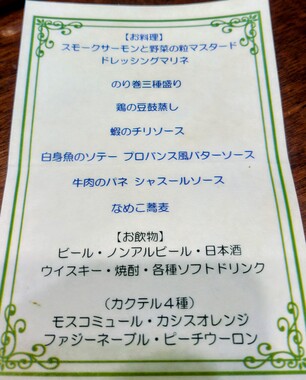 【お料理】
スモークサーモンと野菜の粒マスタード
ドレッシングマリネ
のり巻三種盛り
鶏の豆鼓蒸し
蝦のチリソース
白身魚のソテー プロバンス風バターソース
牛肉のパネ シャスールソース
なめこ蕎麦
【お飲物】
ビール・ノンアルビール・日本酒
ウイスキー・焼酎・各種ソフトドリンク
（カクテル４種）
モスコミュール・カシスオレンジ
ファジーネーブル・ピーチウーロン